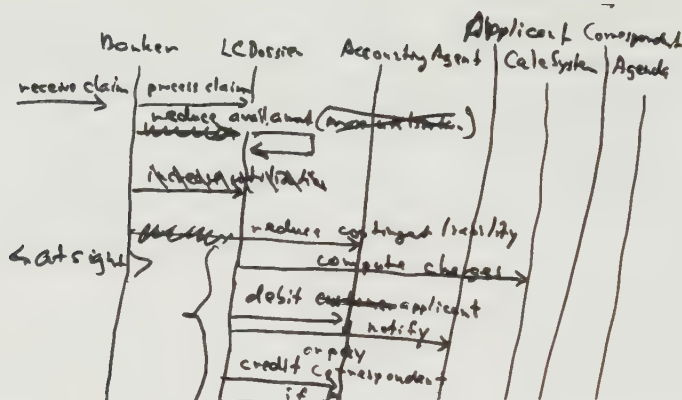 Banker LCDossier AccountingAgent Applicant Correspondent
CalcSystem Agenda
receive claim process claim
reduce avail amt
reduce contingent liability
<at sight>
compute charges
debit applicant
notify
or pay
credit correspondent
if